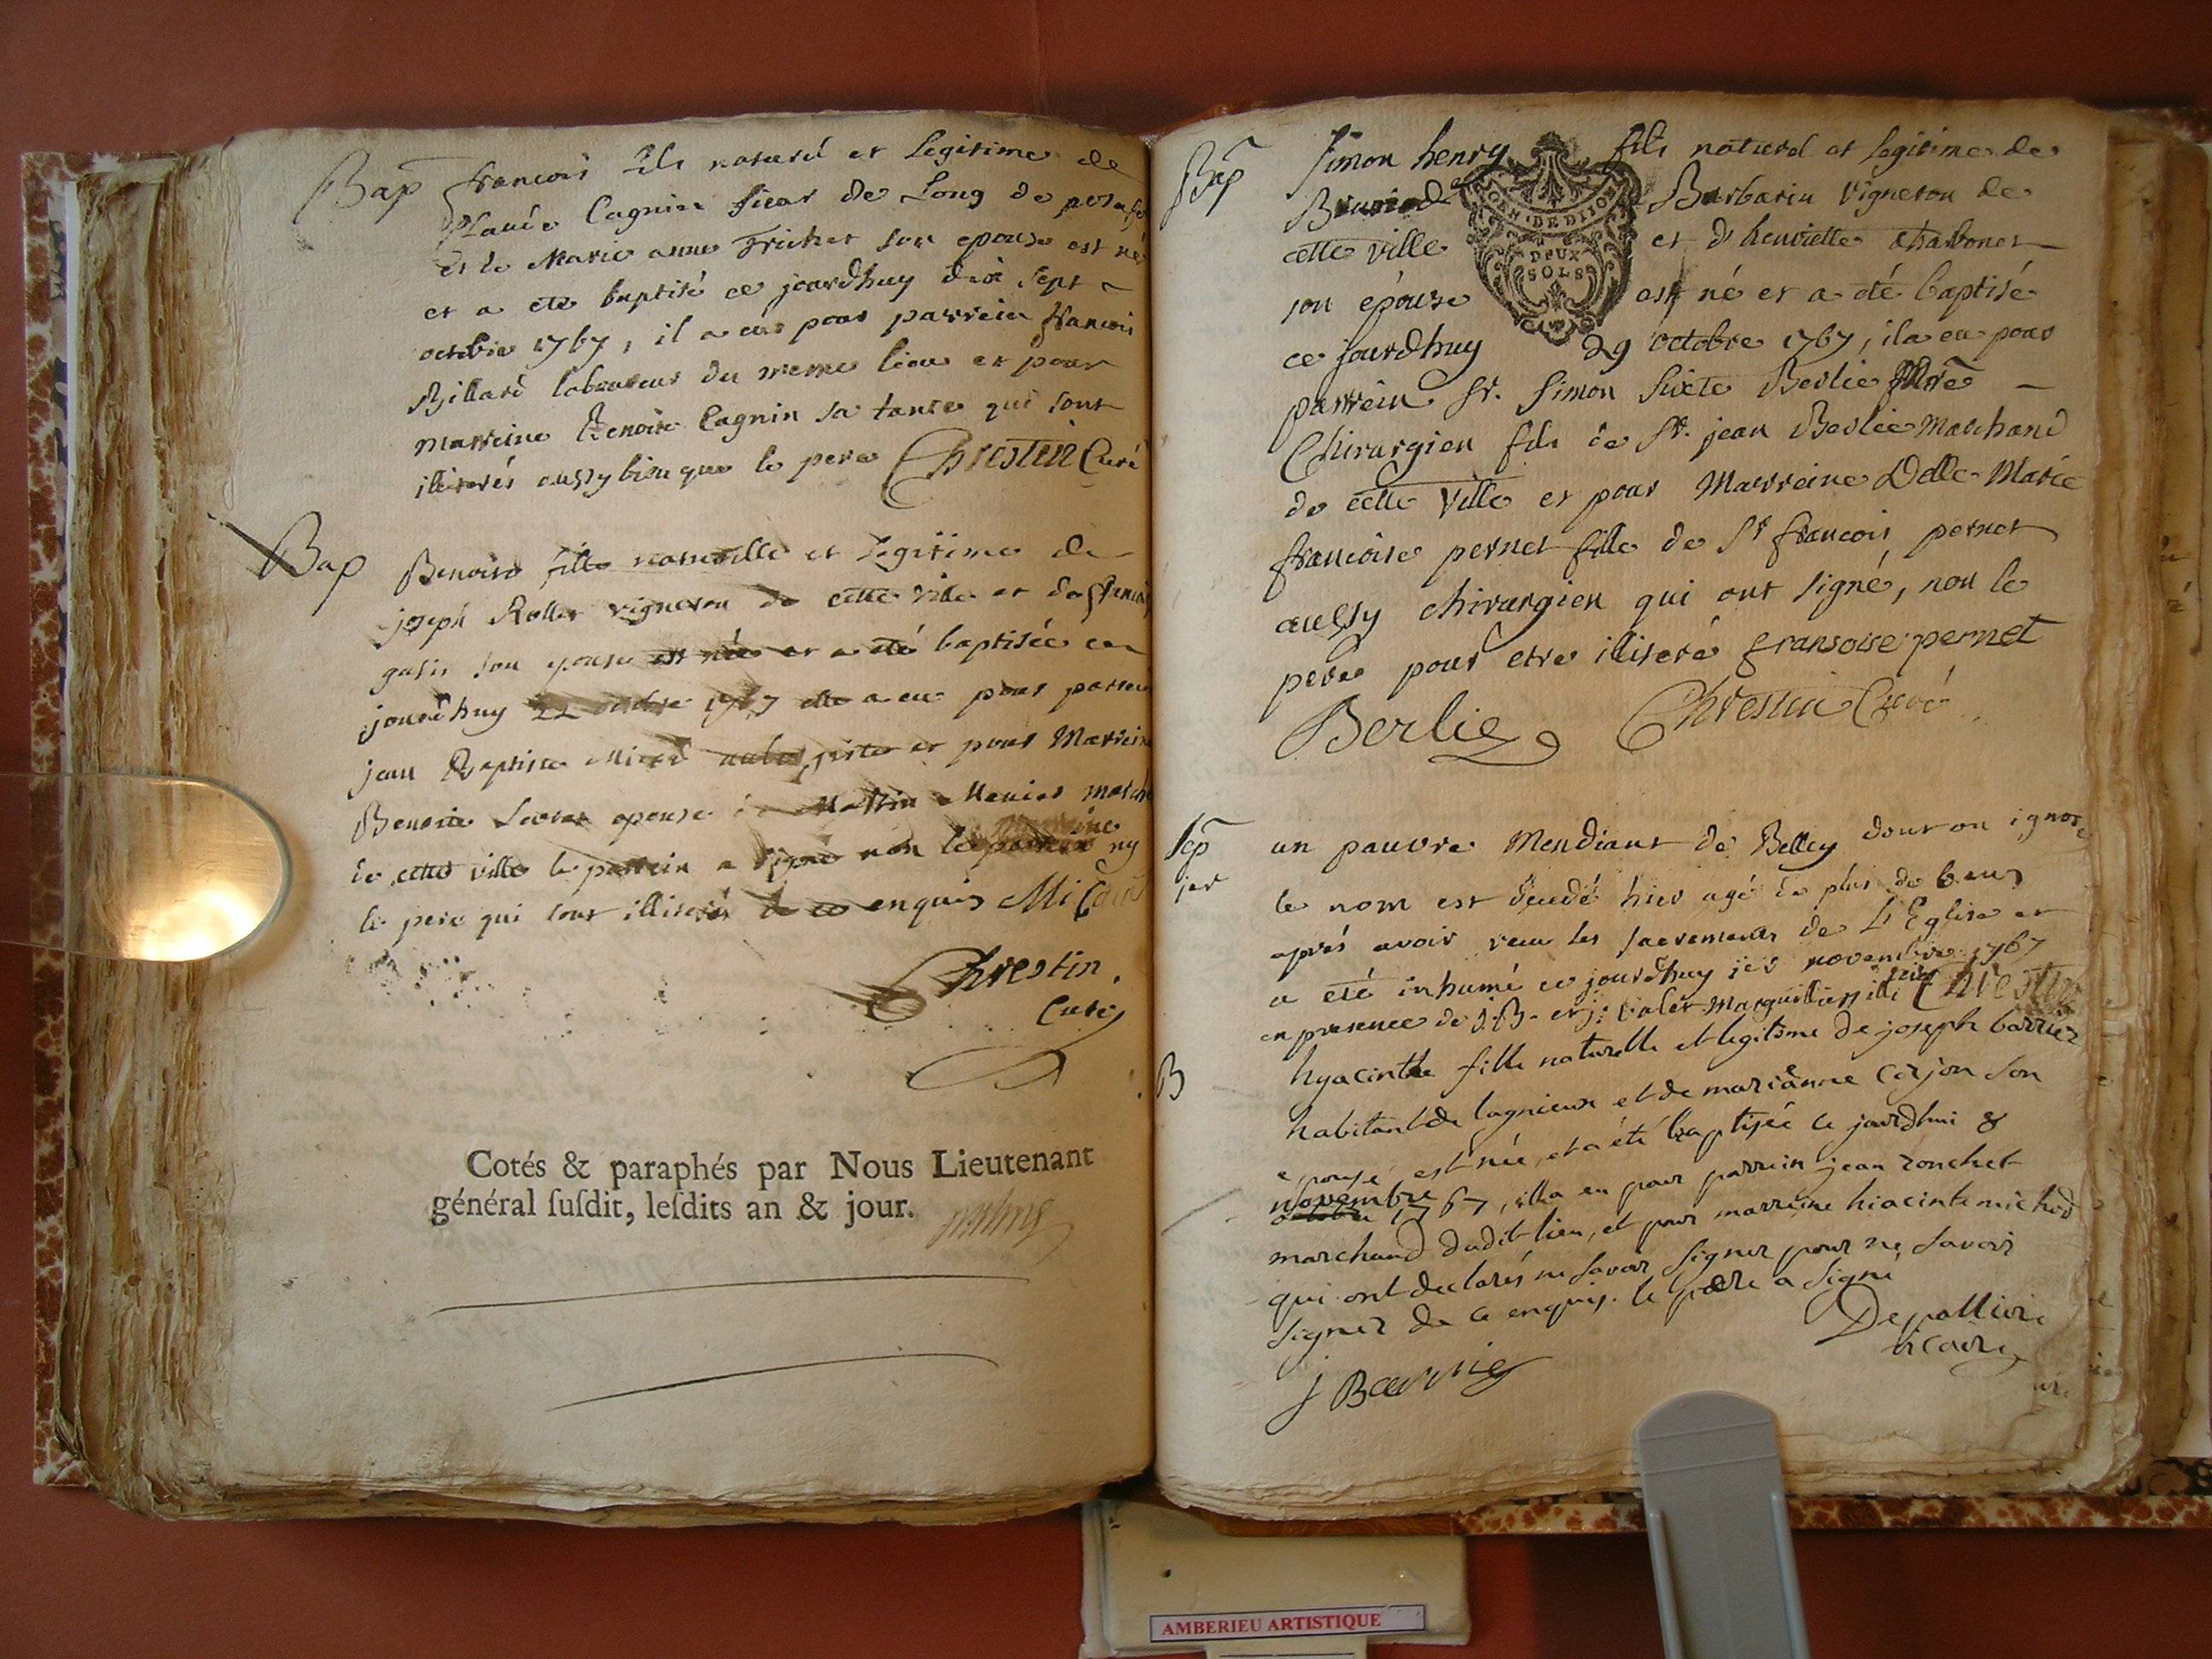 Bap francois fils naturel et Legitime de
Claude Cagnin sieur de Long de
et de Marie anne Trichet son epouse est né
et a eté baptisé ce jourdhuy dix sept
octobre 1767, il a eu pour parrein francois
Billard laboureur du meme lieu et pour
marreine Benoite Cagnin sa tante qui sont
illiterés aussy bien que le pere Chrestin Curé
Bap Benoite fille naturelle et Legitime de
joseph Rollet vigneron de cette ville et de
son epouse est née et a eté baptisée ce
jourdhuy 22 octobre 1767 elle a eu pour parrein
jean Baptiste Micod et pour Marreine
Benoite epouse de
de cette ville le parrein a signé non la ny
le pere qui sont illiterés de ce enquis
Chrestin
Curé
Cotés & paraphés par Nous Lieutenant
général ſuſdit, leſdits an & jour.
Bap Simon henry fils naturel et legitime de
Barbarin vigneron de
cette ville et d'henriette Charbonet
son épouse est né et a été baptisé
ce jourdhuy 29 octobre 1767, il a eu pour
parrein Sr. Simon Sixte Berlie
Chirurgien fils de Sr. jean Berlie Marchand
de cette Ville et pour Marreine Delle Marie
francoise pernet fille de Sr francois pernet
aussy chirurgien qui ont signé, non le
pere pour etre illiteré fransoise pernet
Berlie Chrestin Curé
GEN · DE DIJON
DEUX
SOLS
Sep un pauvre Mendiant de Belley dont on ignore
le nom est décédé hier agé de plus de
aprés avoir receu les sacrements de L'Eglise et
a eté inhumé ce jourdhuy 1er novembre 1767
en presence de J.B. et j: valet Marguilliers Chrestin
B hyacinthe fille naturelle et legitime de joseph barrier
habitant de lagnieux et de marianne Corjon son
epouse est née, et a été baptisée ce jourdhui 8
novembre 1767, illa eu pour parrein jean ronchet
marchand dudit lieu, et pour marreine hiacinte michod
qui ont declarés ne savoir signer pour ne savoir
signer de ce enquis. le pere a signé
Depalliere
vicaire
J Barrier
AMBERIEU ARTISTIQUE